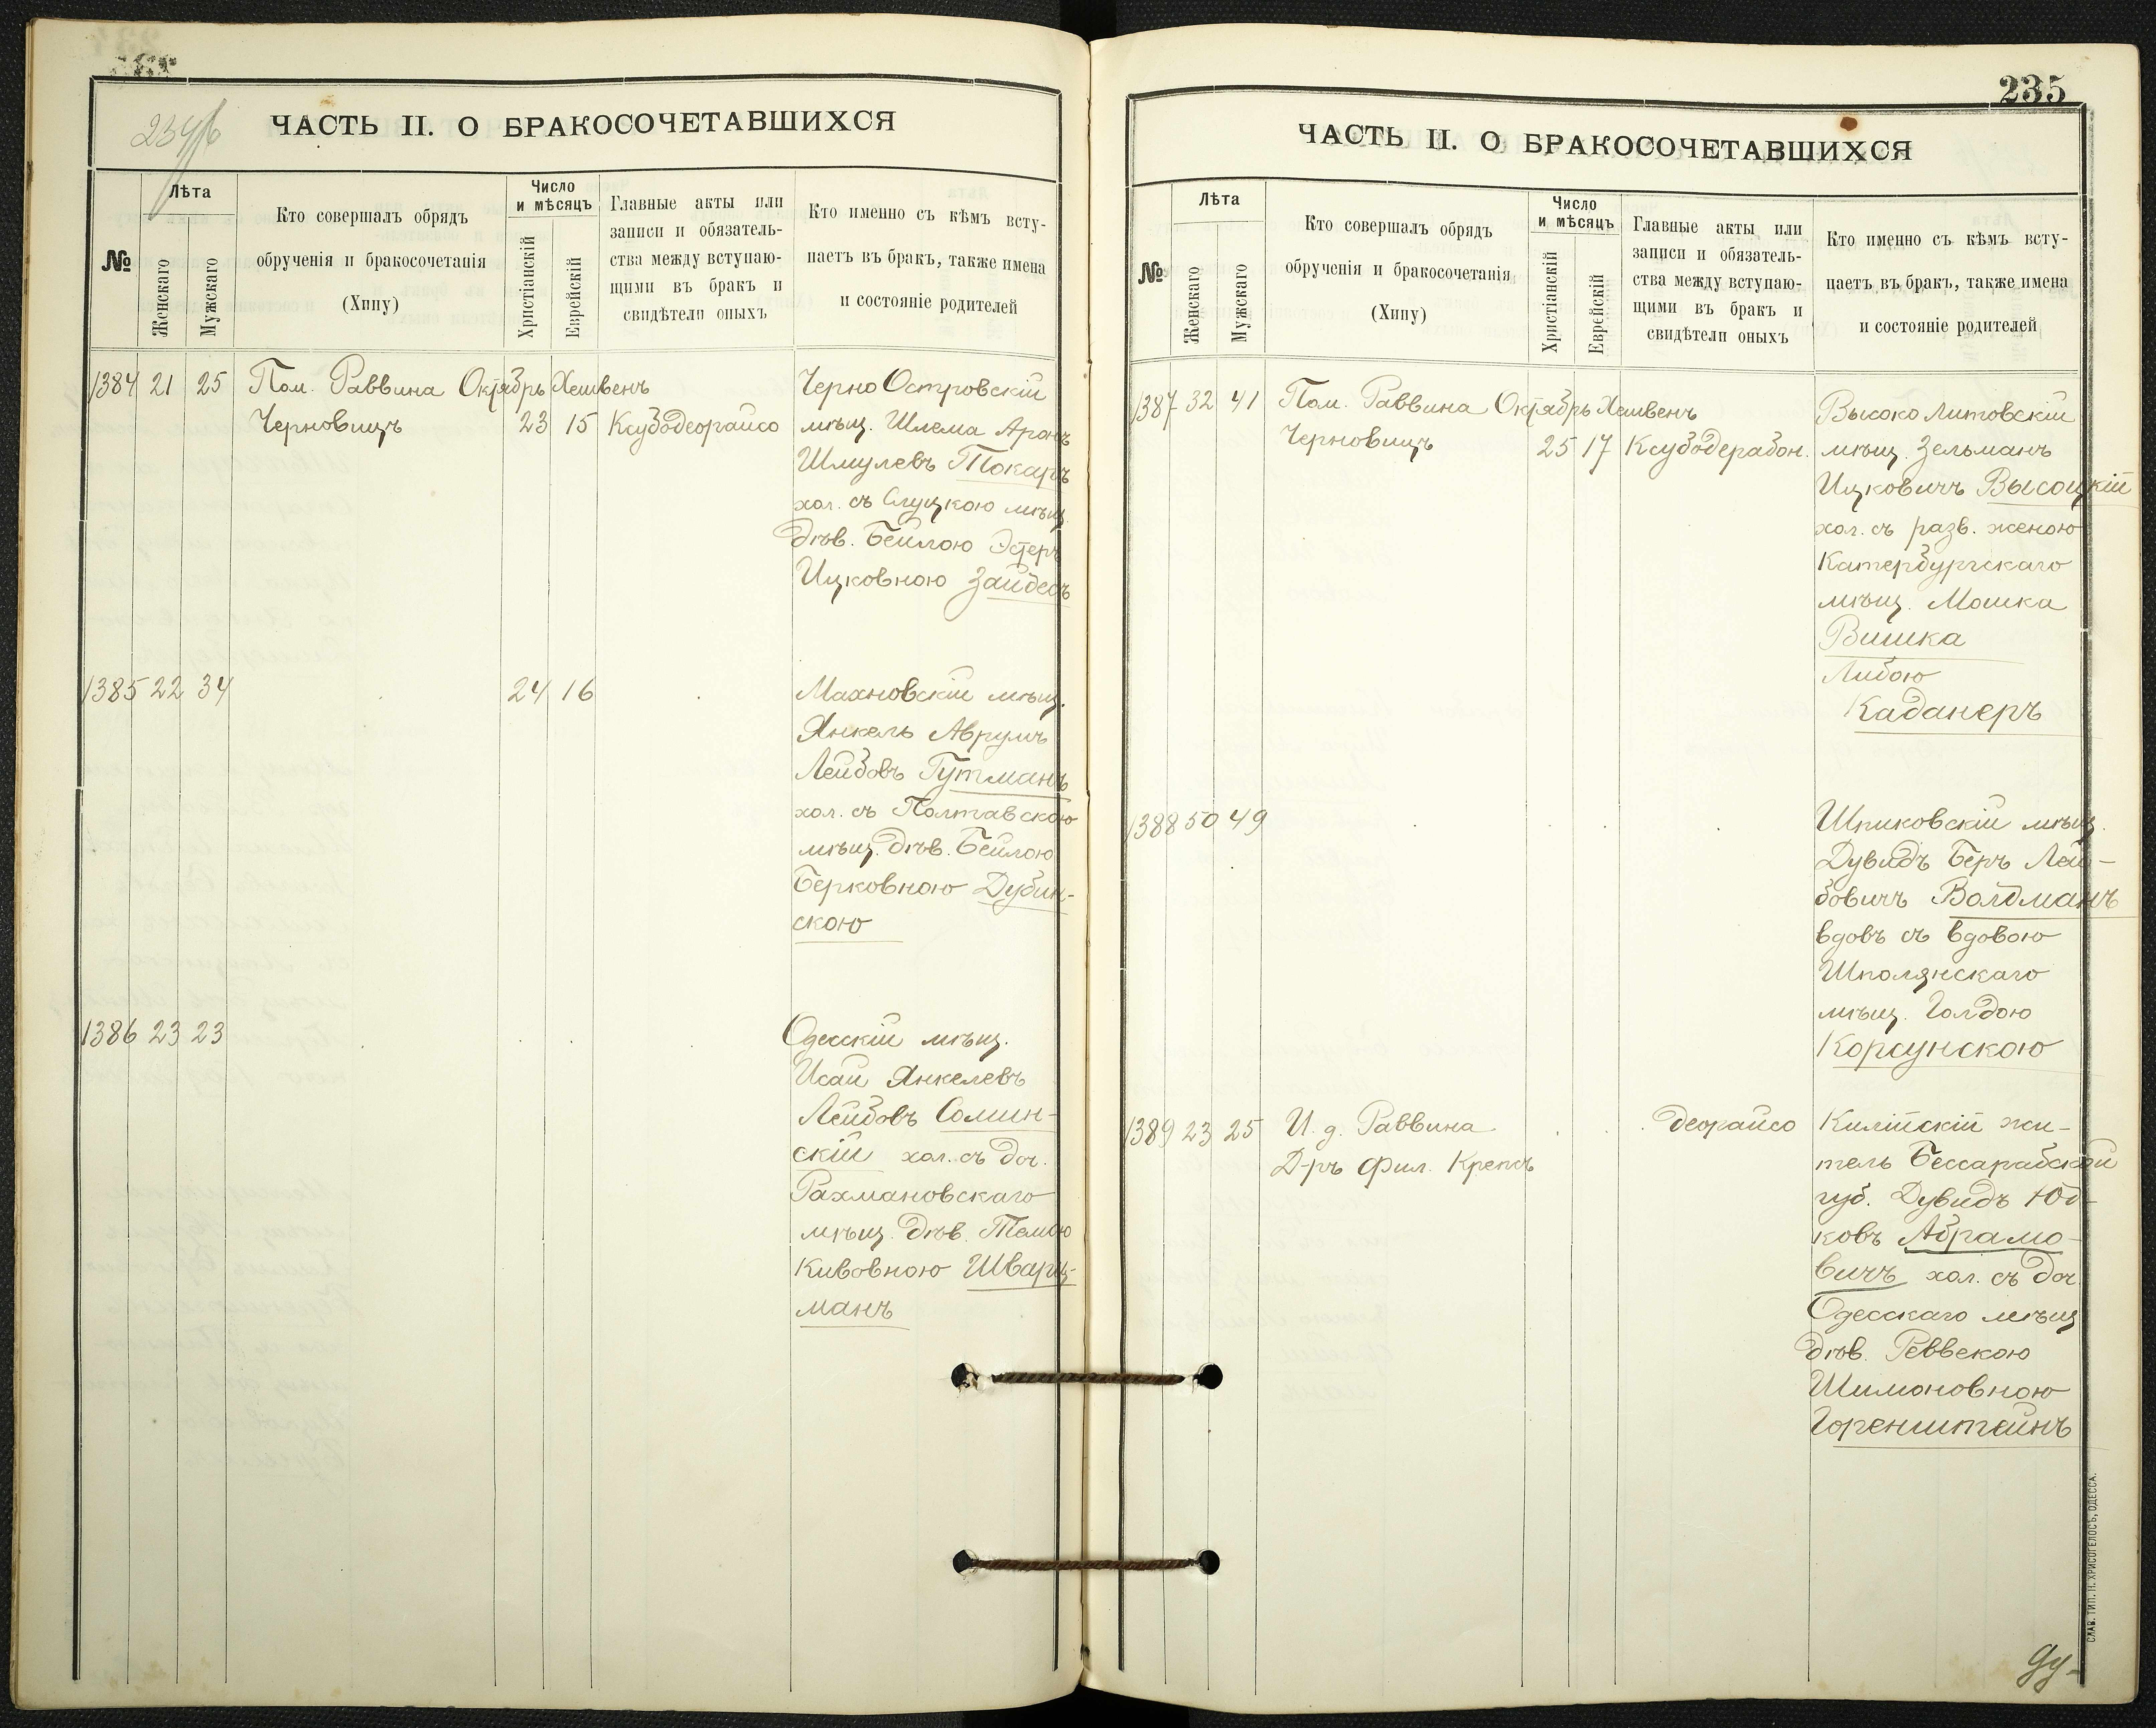 234/б
ЧАСТЬ II. О БРАКОСОЧЕТАВШИХСЯ
№
Лѣта
Женскаго
Мужскаго
Кто совершалъ обрядъ
обрученія и бракосочетанія
(Хипу)
Число
и мѣсяцъ
Христіанскій
Еврейскій
Главные акты или
записи и обязатель-
ства между вступаю-
щими въ бракъ и
свидѣтели оныхъ
Кто именно съ кѣмъ всту-
паетъ въ бракъ, также имена
и состояніе родителей
1384 21 25 Пом. Раввина Октябрь Хешвенъ ЧерноОстровскій
Черновицъ 23 15 Ксубодеорайсо мѣщ. Шлема Аронъ
Шмулевъ Токаръ
хол. съ Слуцкою мѣщ.
дѣв. Бейлою Эстеръ
Ицковною Зайдесъ
1385 22 34 24 16 Махновскій мѣщ.
Янкель Аврумъ
Лейбовъ Гутманъ
хол. съ Полтавскою
мѣщ. дѣв. Бейлою
Берковною Дубин-
скою
1386 23 23 Одесскій мѣщ.
Исай Янкелевъ
Лейбовъ Солин-
скій хол. съ доч.
Рахмановскаго
мѣщ. дѣв.
Кивовною Шварц-
манъ
235
ЧАСТЬ II. О БРАКОСОЧЕТАВШИХСЯ
№
Лѣта
Женскаго
Мужскаго
Кто совершалъ обрядъ
обрученія и бракосочетанія
(Хипу)
Число
и мѣсяцъ
Христіанскій
Еврейскій
Главные акты или
записи и обязатель-
ства между вступаю-
щими въ бракъ и
свидѣтели оныхъ
Кто именно съ кѣмъ всту-
паетъ въ бракъ, также имена
и состояніе родителей
1387 32 41 Пом. Раввина Октябрь Хешвенъ Высоко Литовскій
Черновицъ 25 17 Ксубодерабон. мѣщ. Зельманъ
Ицковичъ Высоцкій
хол. съ разв. женою
Катербургскаго
мѣщ. Мошка
Вишка
Либою
Каданеръ
1388 50 49 Шпиковскій мѣщ.
Дувидъ Беръ Лей-
бовичъ Волдманъ
вдовъ съ вдовою
Шполянскаго
мѣщ. Голдою
Корсунскою
1389 23 25 И. д. Раввина деорайсо Килійскій жи-
Д-ръ Фил. Крепсъ тель Бессарабской
губ. Дувидъ Юд-
ковъ Абрамо-
вичъ хол. съ доч.
Одесскаго мѣщ
дѣв. Реввекою
Шимоновною
Горенштейнъ
СЛАВ. ТИП. Н. ХРИСОГЕЛОСЪ, ОДЕССА.
Ду-